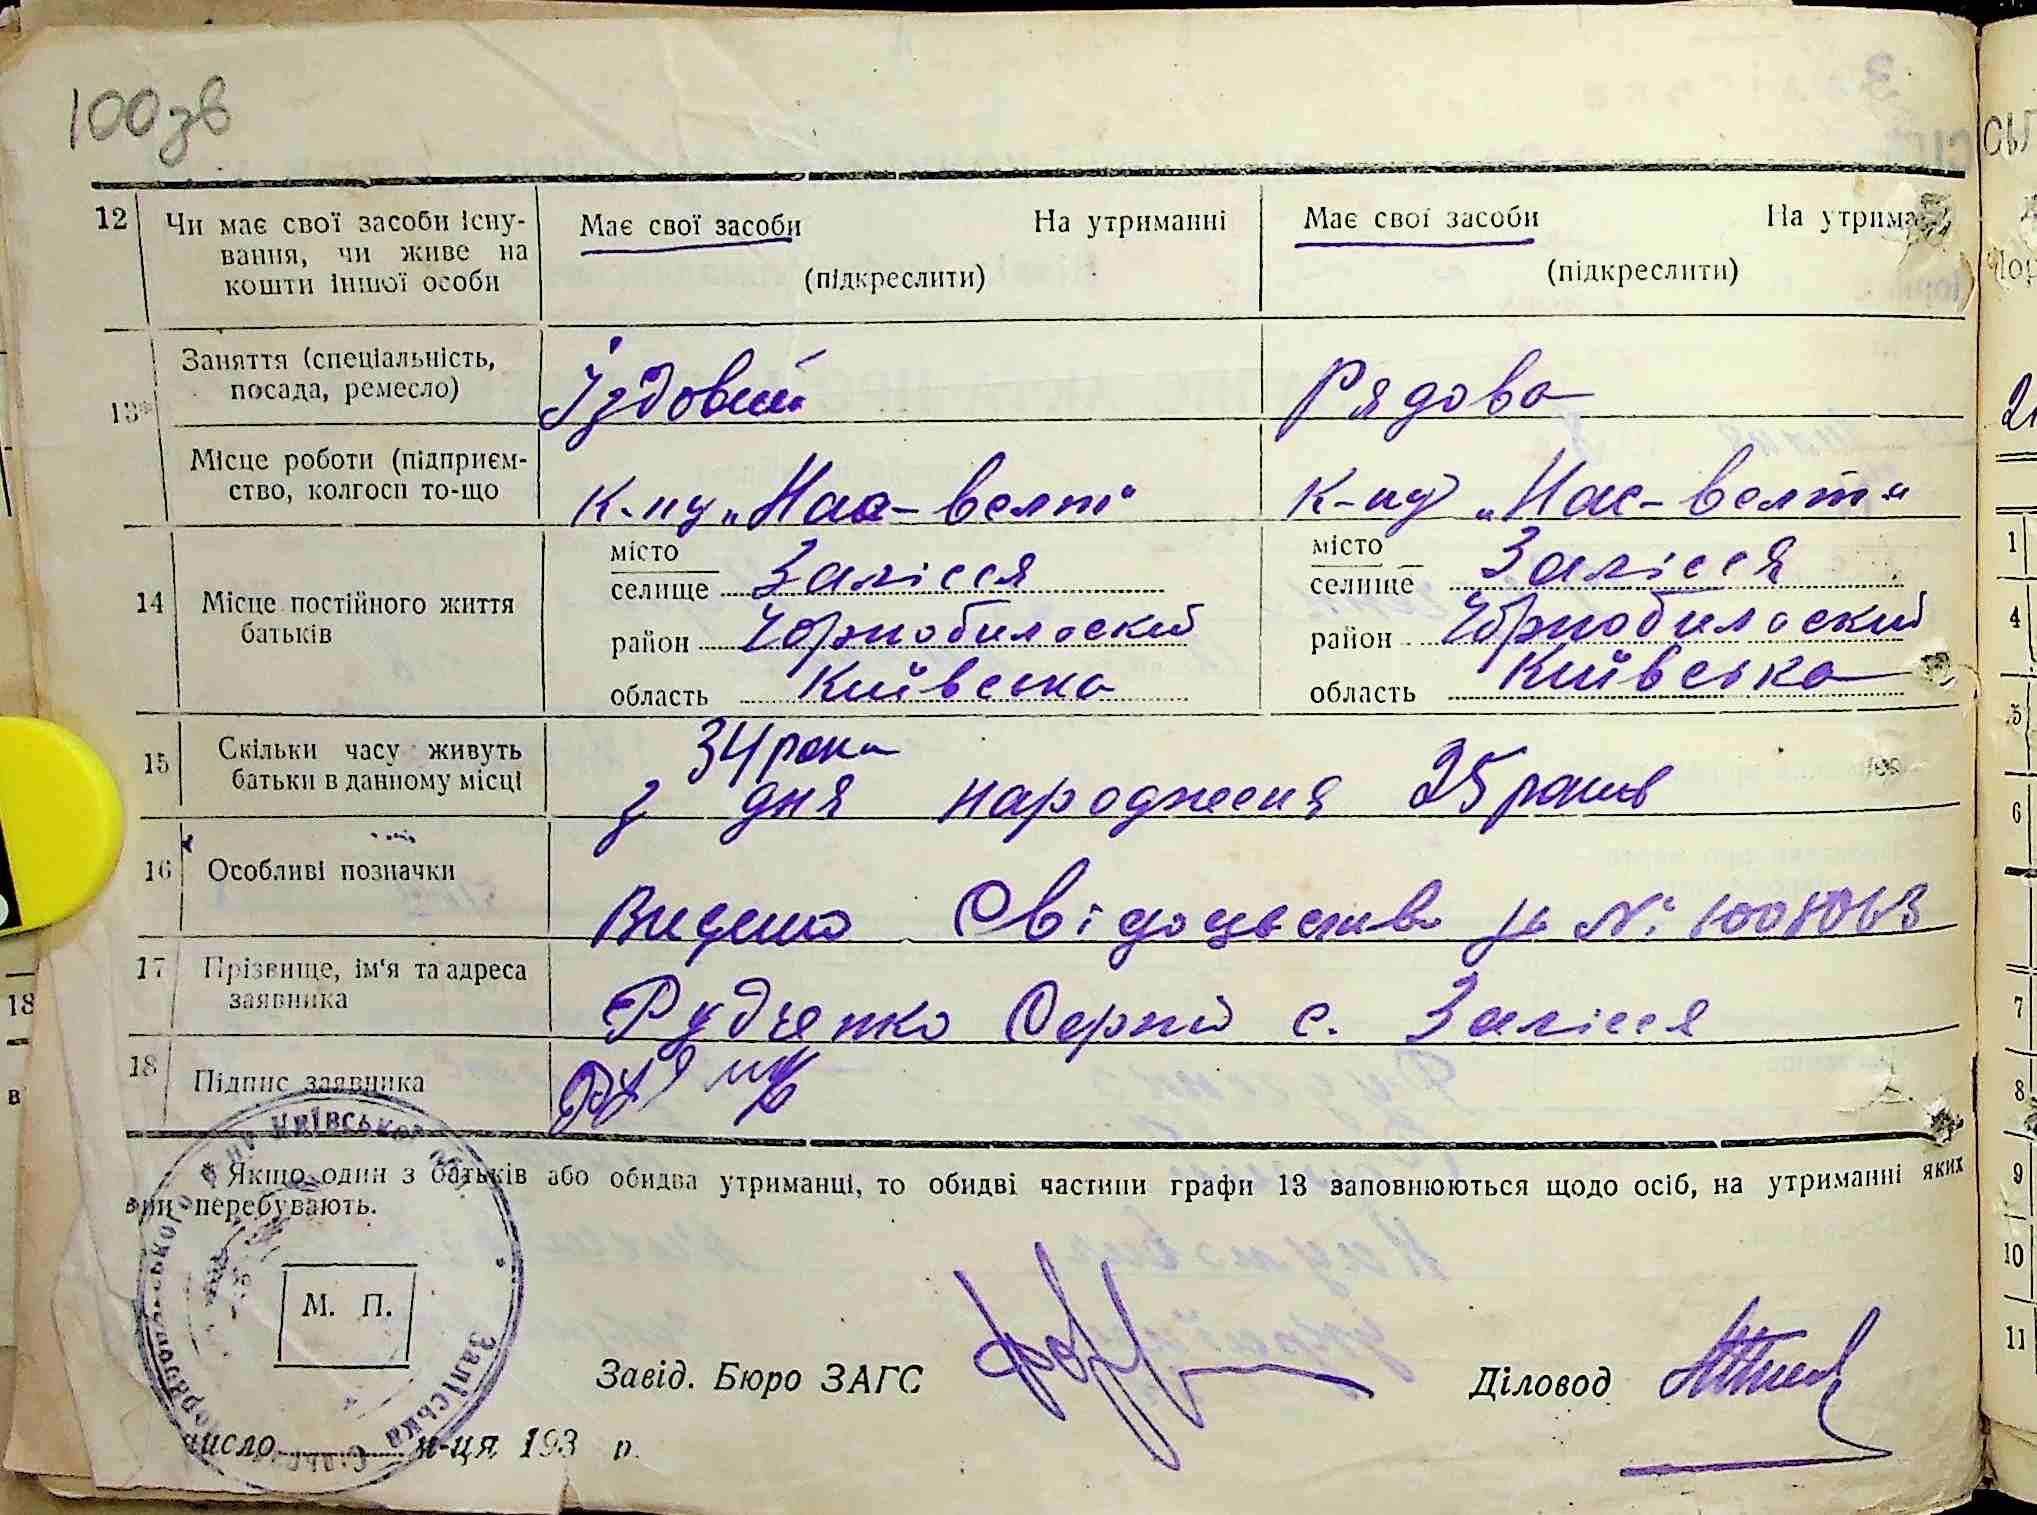 100зв
12 Чи має свої засоби існу-
вання, чи живе на
кошти іншої особи
Має свої засоби На утриманні
(підкреслити)
Має свої засоби На утрима
(підкреслити)
13* Заняття (спеціальність,
посада, ремесло)
Їздовий
Рядова
Місце роботи (підприєм-
ство, колгосп то-що
к-пу „Нас-велт"
к-пу „Нас-велт"
14 Місце постійного життя
батьків
місто
селище Залісся
район Чорнобильский
область Київська
місто
селище Залісся
район Чорнобильский
область Київська
15 Скільки часу живуть
батьки в данному місці
34 роки
з дня народження 25 років
16 Особливі позначки
Видано Свідоцьство за №
17 Прізвище, ім'я та адреса
заявника
Рудченко Сергій с. Залісся
18 Підпис заявника
* Якщо один з батьків або обидва утриманці, то обидві частини графи 13 заповнюються щодо осіб, на утриманні яких
вони перебувають.
М. П.
Київської
Заліська
Завід. Бюро ЗАГС
Діловод
число м-ця 193 р.